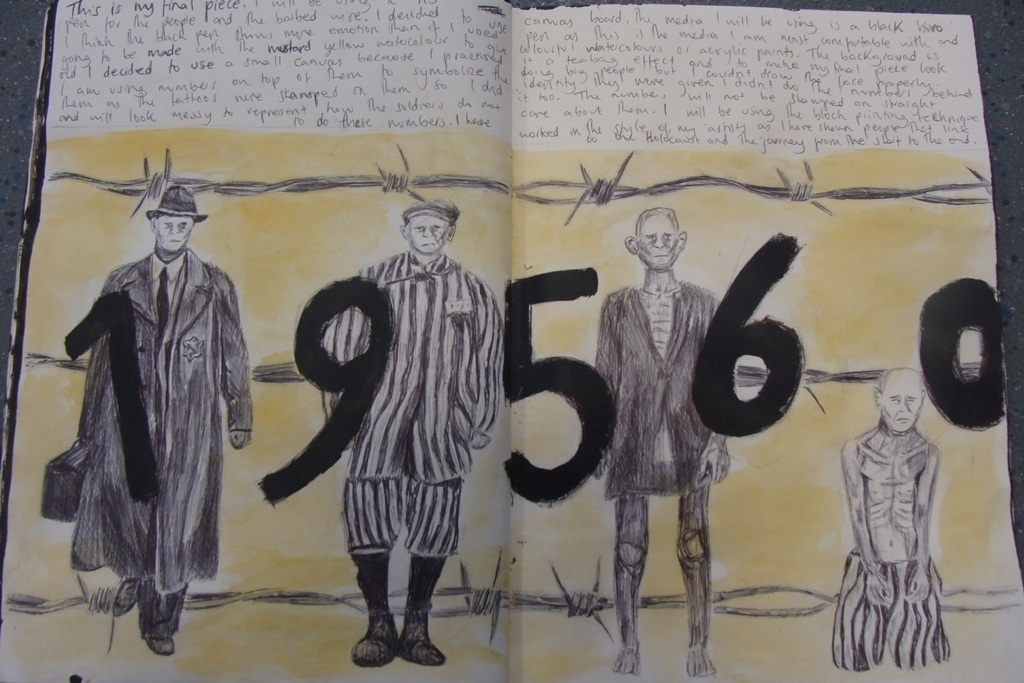 This is my final piece. I will be using a
pen for the people and the barbed wire. I decided to use
I think the black pen shows more emotion than if I used
going to be made with the mustard yellow watercolour to give
old. I decided to use a small canvas because I practised
I am using numbers on top of them to symbolize the
them as the tattoos were stamped on them so I did
and will look messy to represent how the soldiers do not
to do these numbers. I have
canvas board, the media I will be using is a black biro
pen as this is the media I am most comfortable with and
colourful watercolours or acrylic paints. The background is
it a teabag effect and to make my final piece look
doing big people but I couldn't draw the face properly.
identity they were given I didn't do the numbers behind
it too. The numbers will not be stamped on straight
care about them. I will be using the block printing technique
worked in the style of my artist as I have shown people that link
to the Holocaust and the journey from the start to the end.
19560